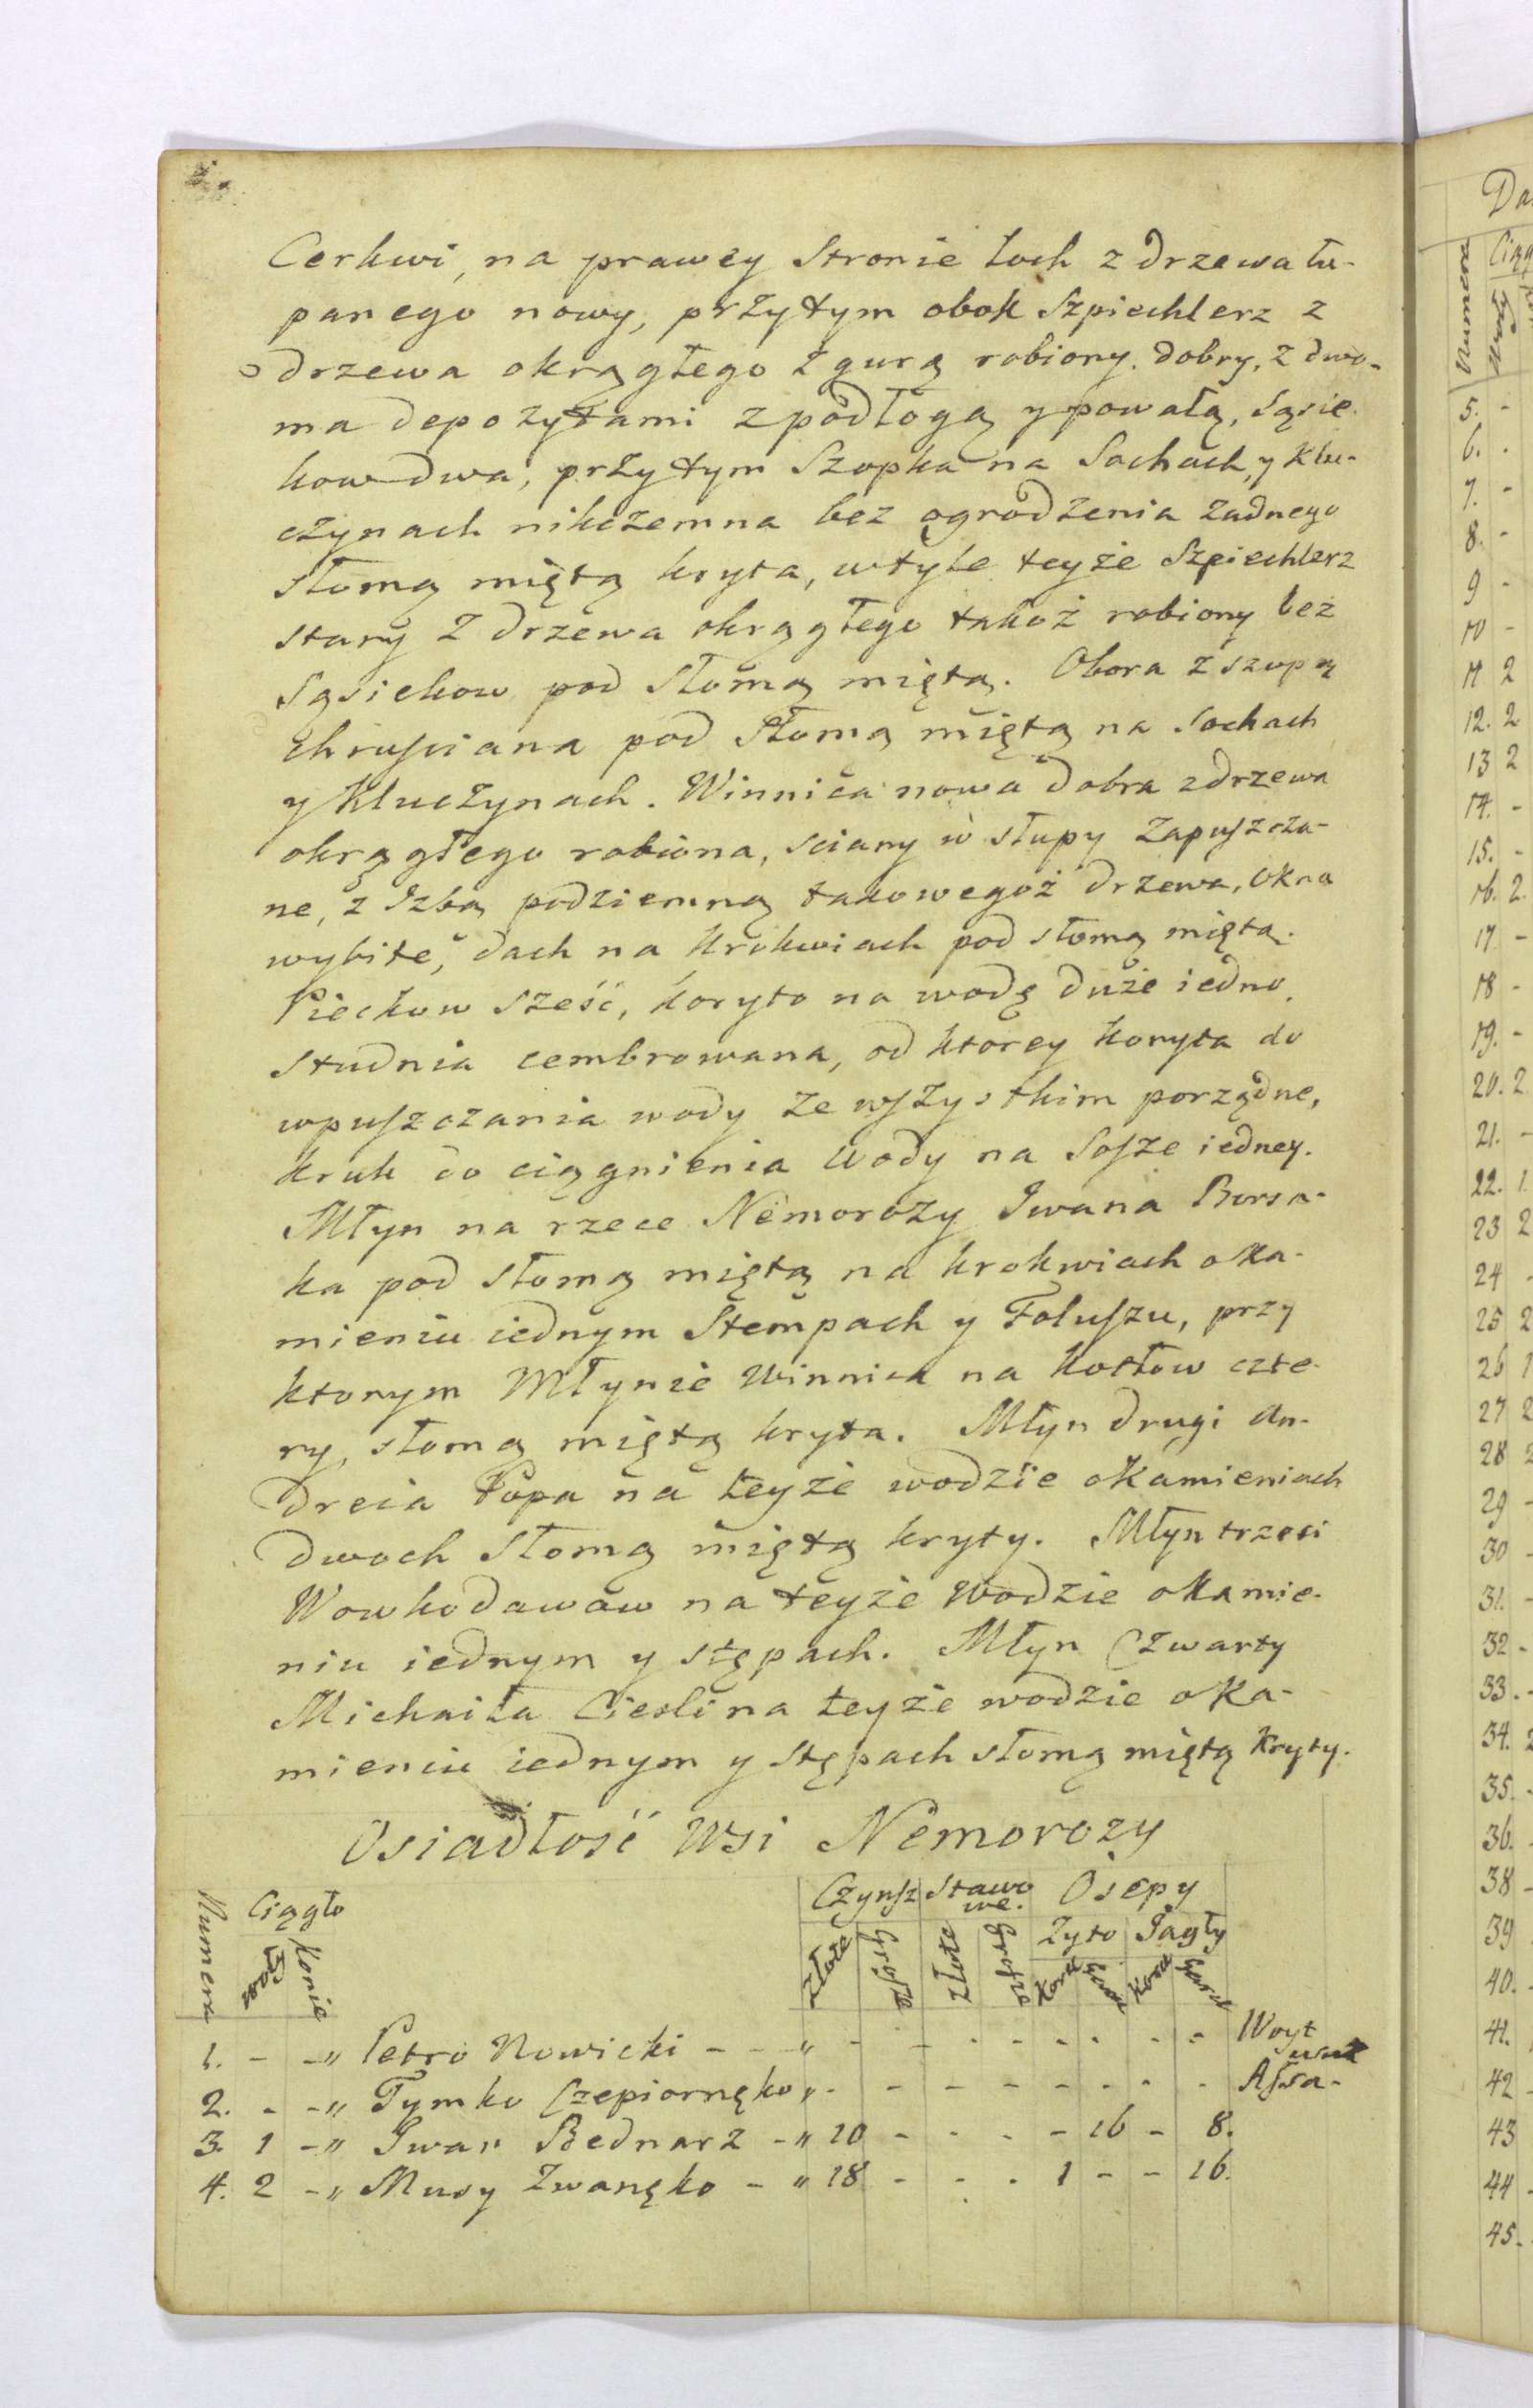 Cerkwi, na prawey Stronie loch z drzewa łu-
panego nowy, przytym obok Szpiechlerz z
drzewa okrągłego z gurą robiony dobry, z dwo-
ma depozytami z podłogą y powałą, sąsie-
kow dwa, przytym Szopka na Sochach, y klu-
czynach nikczemna bez ogrodzenia zadnego
słomą miętą kryta, w tyle teyże Szpiechlerz
stary z drzewa okrągłego takoż robiony bez
Sąsiekow pod słomą miętą. Obora z szopą
Chruściana pod słomą miętą na Sochach
y Kluczynach. Winnica nowa dobra z drzewa
okrągłego robiona, sciany w słupy zapuszcza-
ne, z Izbą podziemną takowegoż drzewa, okna
wybite, dach na krokwiach pod słomą miętą.
Piecków sześć, koryto na wodę duże iedno
studnia cembrowana, od ktorey koryta do
wpuszczania wody ze wszystkim porządne,
kruk do ciągnienia wody na Sosze iedney.
Młyn na rzece Nemorozy Iwana Borsa-
ka pod słomą miętą na krokwiach o ka-
mieniu iednym Stempach y Foluszu, przy
ktorym Młynie Winnica na kotłow czte-
ry, słomą miętą kryta. Młyn drugi An-
dreia Popa na teyże wodzie o kamieniach
dwoch słomą miętą kryty. Młyn trzeci
Wowkodawow na teyże wodzie o kamie-
niu iednym y stępach. Młyn Czwarty
Michaiła Ciesli na teyże wodzie o ka-
mieniu iednym y stępach słomą miętą kryty.
Osiadłość Wsi Nemorozy
Numera Ciągło Woły Konie Czynsz Stawowe. Osepy
Złote Grosze Złote Grosze Zyto Jagły
Korce Garce Korce Garce
1. - -" Petro Nowicki - - " - - - - - - - - Woyt
2. - -" Tymko Czepiornęko " - - - - - - - - Assa-
3. 1 -" Iwan Bednarz -" 10 - - - - 16 - 8.
4. 2 -" Musy Zwanęko - " 18 - - - 1 - - 16.
Da
Numera Ciąg
5. -
6. -
7. -
8. -
9 -
10 -
11 2
12. 2
13 2
14. -
15. -
16. 2.
17 -
18 -
19. -
20. 2
21. -
22. 1.
23 2
24 -
25 2
26 1
27 2
28 2
29 -
30 -
31. -
32 -
33. -
34. 2
35. -
36. -
38 -
39
40. -
41.
42 -
43
44 -
45.